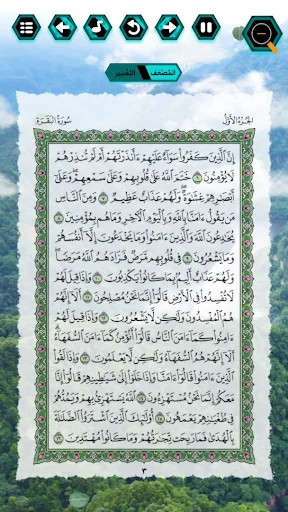 المُصْحَف التَّفْسِير
الجُزْءُ الأَوَّلُ سُورَةُ البَقَرَةِ
إِنَّ ٱلَّذِينَ كَفَرُوا۟ سَوَآءٌ عَلَيْهِمْ ءَأَنذَرْتَهُمْ أَمْ لَمْ تُنذِرْهُمْ
لَا يُؤْمِنُونَ ٦ خَتَمَ ٱللَّهُ عَلَىٰ قُلُوبِهِمْ وَعَلَىٰ سَمْعِهِمْ ۖ وَعَلَىٰٓ
أَبْصَٰرِهِمْ غِشَٰوَةٌ ۖ وَلَهُمْ عَذَابٌ عَظِيمٌ ٧ وَمِنَ ٱلنَّاسِ
مَن يَقُولُ ءَامَنَّا بِٱللَّهِ وَبِٱلْيَوْمِ ٱلْءَاخِرِ وَمَا هُم بِمُؤْمِنِينَ ٨
يُخَٰدِعُونَ ٱللَّهَ وَٱلَّذِينَ ءَامَنُوا۟ وَمَا يَخْدَعُونَ إِلَّآ أَنفُسَهُمْ
وَمَا يَشْعُرُونَ ٩ فِى قُلُوبِهِم مَّرَضٌ فَزَادَهُمُ ٱللَّهُ مَرَضًا ۖ
وَلَهُمْ عَذَابٌ أَلِيمٌۢ بِمَا كَانُوا۟ يَكْذِبُونَ ١٠ وَإِذَا قِيلَ لَهُمْ
لَا تُفْسِدُوا۟ فِى ٱلْأَرْضِ قَالُوٓا۟ إِنَّمَا نَحْنُ مُصْلِحُونَ ١١ أَلَآ إِنَّهُمْ
هُمُ ٱلْمُفْسِدُونَ وَلَٰكِن لَّا يَشْعُرُونَ ١٢ وَإِذَا قِيلَ لَهُمْ
ءَامِنُوا۟ كَمَآ ءَامَنَ ٱلنَّاسُ قَالُوٓا۟ أَنُؤْمِنُ كَمَآ ءَامَنَ ٱلسُّفَهَآءُ ۗ
أَلَآ إِنَّهُمْ هُمُ ٱلسُّفَهَآءُ وَلَٰكِن لَّا يَعْلَمُونَ ١٣ وَإِذَا لَقُوا۟
ٱلَّذِينَ ءَامَنُوا۟ قَالُوٓا۟ ءَامَنَّا وَإِذَا خَلَوْا۟ إِلَىٰ شَيَٰطِينِهِمْ قَالُوٓا۟ إِنَّا
مَعَكُمْ إِنَّمَا نَحْنُ مُسْتَهْزِءُونَ ١٤ ٱللَّهُ يَسْتَهْزِئُ بِهِمْ وَيَمُدُّهُمْ
فِى طُغْيَٰنِهِمْ يَعْمَهُونَ ١٥ أُو۟لَٰٓئِكَ ٱلَّذِينَ ٱشْتَرَوُا۟ ٱلضَّلَٰلَةَ
بِٱلْهُدَىٰ فَمَا رَبِحَت تِّجَٰرَتُهُمْ وَمَا كَانُوا۟ مُهْتَدِينَ ١٦
٣